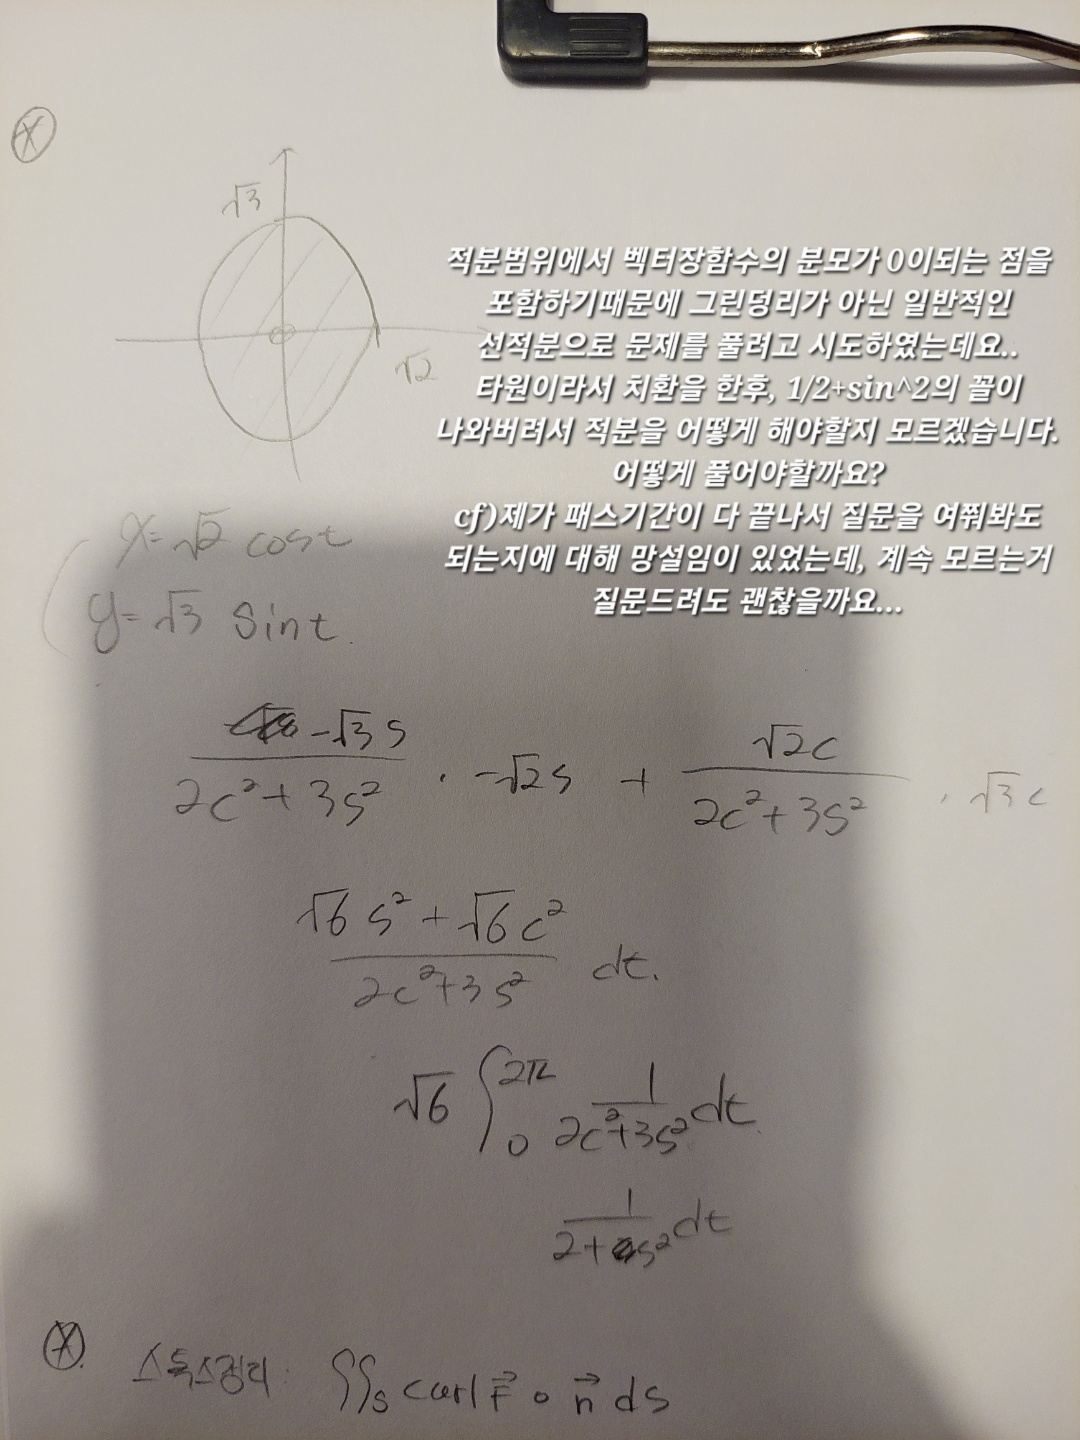 (X)
√3
√2
적분범위에서 벡터장함수의 분모가 0이되는 점을
포함하기때문에 그린덩리가 아닌 일반적인
선적분으로 문제를 풀려고 시도하였는데요..
타원이라서 치환을 한후, 1/2+sin^2의 꼴이
나와버려서 적분을 어떻게 해야할지 모르겠습니다.
어떻게 풀어야할까요?
cf)제가 패스기간이 다 끝나서 질문을 여쭤봐도
되는지에 대해 망설임이 있었는데, 계속 모르는거
질문드려도 괜찮을까요...
x=√2 cost
y=√3 sint.
-√3s/(2c²+3s²) · -√2s + √2c/(2c²+3s²) · √3c
(√6s²+√6c²)/(2c²+3s²) dt.
√6 ∫₀^2π 1/(2c²+3s²) dt
1/(2+s²) dt
(X). 스톡스정리: ∬s curl F⃗ ∘ n⃗ ds